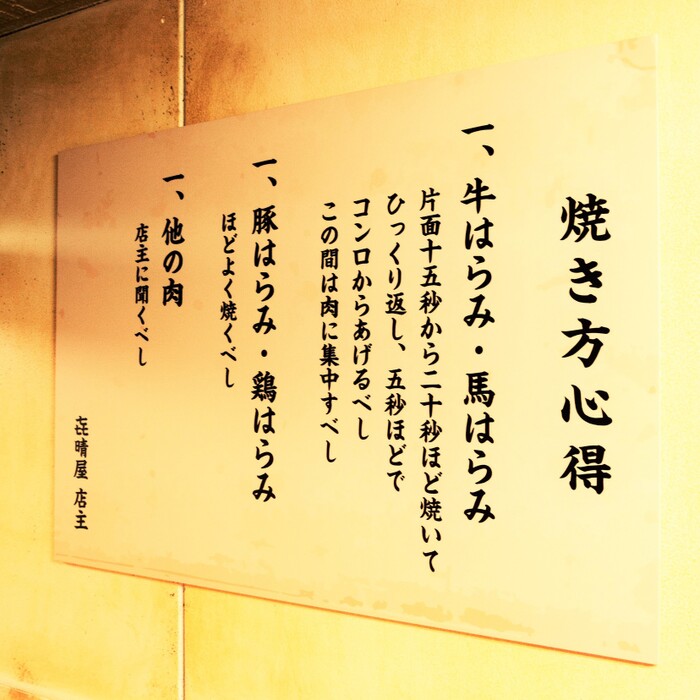 焼き方心得
一、牛はらみ・馬はらみ
片面十五秒から二十秒ほど焼いて
ひっくり返し、五秒ほどで
コンロからあげるべし
この間は肉に集中すべし
一、豚はらみ・鶏はらみ
ほどよく焼くべし
一、他の肉
店主に聞くべし
㐂晴屋 店主